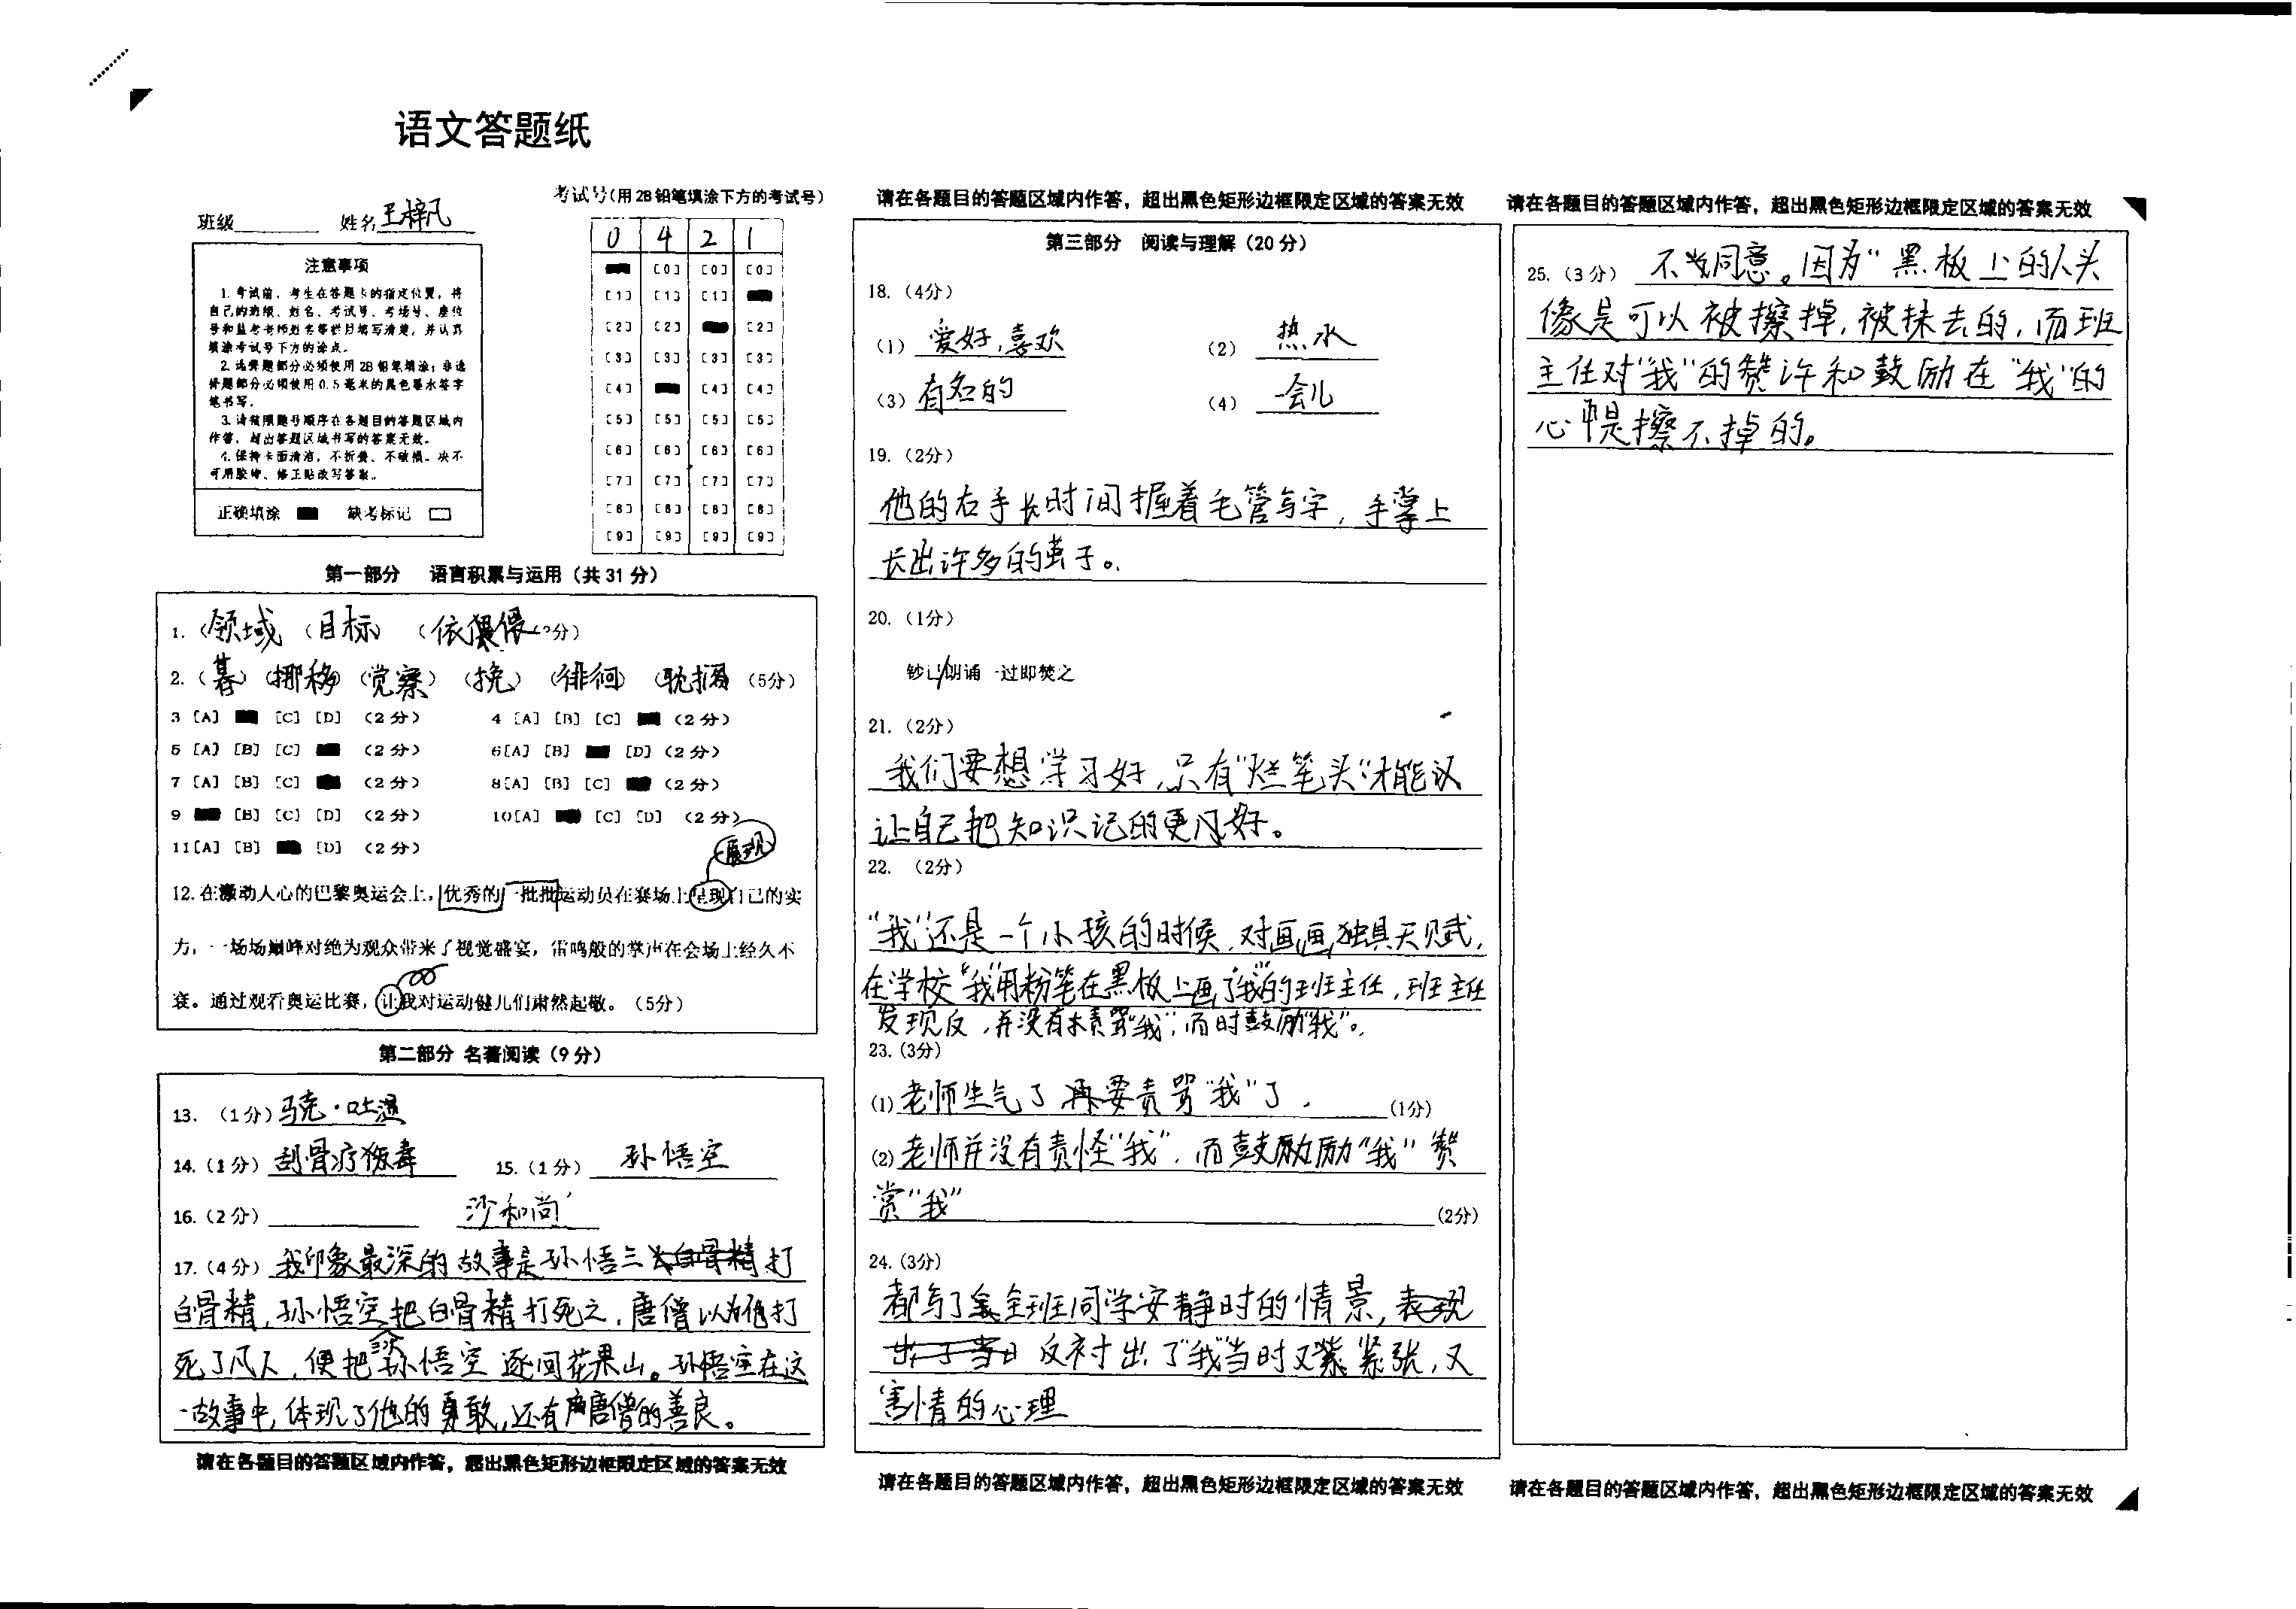 语文答题纸
班级 姓名 王梓凡
考试号(用2B铅笔填涂下方的考试号)
0 4 2 1
[0] [0] [0]
[1] [1] [1]
[2] [2] [2]
[3] [3] [3] [3]
[4] [4] [4]
[5] [5] [5] [5]
[6] [6] [6] [6]
[7] [7] [7] [7]
[8] [8] [8] [8]
[9] [9] [9] [9]
注意事项
1.考试前,考生在答题卡的指定位置,将
自己的班级、姓名、考试号、考场号、座位
号和监考老师姓名等栏目填写清楚,并认真
填涂考试号下方的涂点。
2.选择题部分必须使用2B铅笔填涂;非选
择题部分必须使用0.5毫米的黑色墨水签字
笔书写。
3.请按照题号顺序在各题目的答题区域内
作答,超出答题区域书写的答案无效。
4.保持卡面清洁,不折叠、不破损。决不
可用胶带、修正贴改写答案。
正确填涂 缺考标记
第一部分 语言积累与运用(共31分)
1.(领域 (目标) (依偎 分)
2.(暮) (挪移) (觉察) (挽) (徘徊) (耽搁 (5分)
3 [A] [C] [D] (2分) 4 [A] [B] [C] (2分)
5 [A] [B] [C] (2分) 6[A] [B] [D] (2分)
7 [A] [B] [C] (2分) 8[A] [B] [C] (2分)
9 [B] [C] [D] (2分) 10[A] [C] [D] (2分)
11[A] [B] [D] (2分)
展现
12.在激动人心的巴黎奥运会上,优秀的一批批运动员在赛场上呈现自己的实
力,一场场巅峰对绝为观众带来了视觉盛宴,雷鸣般的掌声在会场上经久不
衰。通过观看奥运比赛,让我对运动健儿们肃然起敬。(5分)
第二部分 名著阅读(9分)
13.(1分)马克·吐温
14.(1分)刮骨疗毒 15.(1分) 孙悟空
16.(2分) 沙和尚
17.(4分)我印象最深的故事是孙悟三打
白骨精,孙悟空把白骨精打死之,唐僧以为他打
死了凡人,便把孙悟空逐回花果山。孙悟空在这
一故事中,体现了他的勇敢,还有唐僧的善良。
请在各题目的答题区域内作答,超出黑色矩形边框限定区域的答案无效
请在各题目的答题区域内作答,超出黑色矩形边框限定区域的答案无效
第三部分 阅读与理解(20分)
18.(4分)
(1) 爱好,喜欢 (2) 热水
(3) 有名的 (4) 一会儿
19.(2分)
他的右手长时间握着毛管写字,手掌上
长出许多的茧子。
20.(1分)
钞让/朗诵一过即焚之
21.(2分)
我们要想学习好,只有“烂笔头”才能
让自己把知识记的更好。
22.(2分)
“我”还是一个小孩的时候,对画画独具天赋,
在学校“我”用粉笔在黑板上画了“我”的班主任,班主任
发现反,并没有责骂“我”,而时鼓励“我”。
23.(3分)
(1)老师生气了 要责骂“我”了. (1分)
(2)老师并没有责怪“我”,而鼓励“我”赞
赏“我” (2分)
24.(3分)
都写了全班同学安静时的情景,
反衬出了“我”当时又紧张,又
害情的心理
请在各题目的答题区域内作答,超出黑色矩形边框限定区域的答案无效
请在各题目的答题区域内作答,超出黑色矩形边框限定区域的答案无效
25.(3分) 不同意。因为“黑板上的人头
像是可以被擦掉,被抹去的,而班
主任对“我”的赞许和鼓励在“我”的
心中是擦不掉的。
请在各题目的答题区域内作答,超出黑色矩形边框限定区域的答案无效